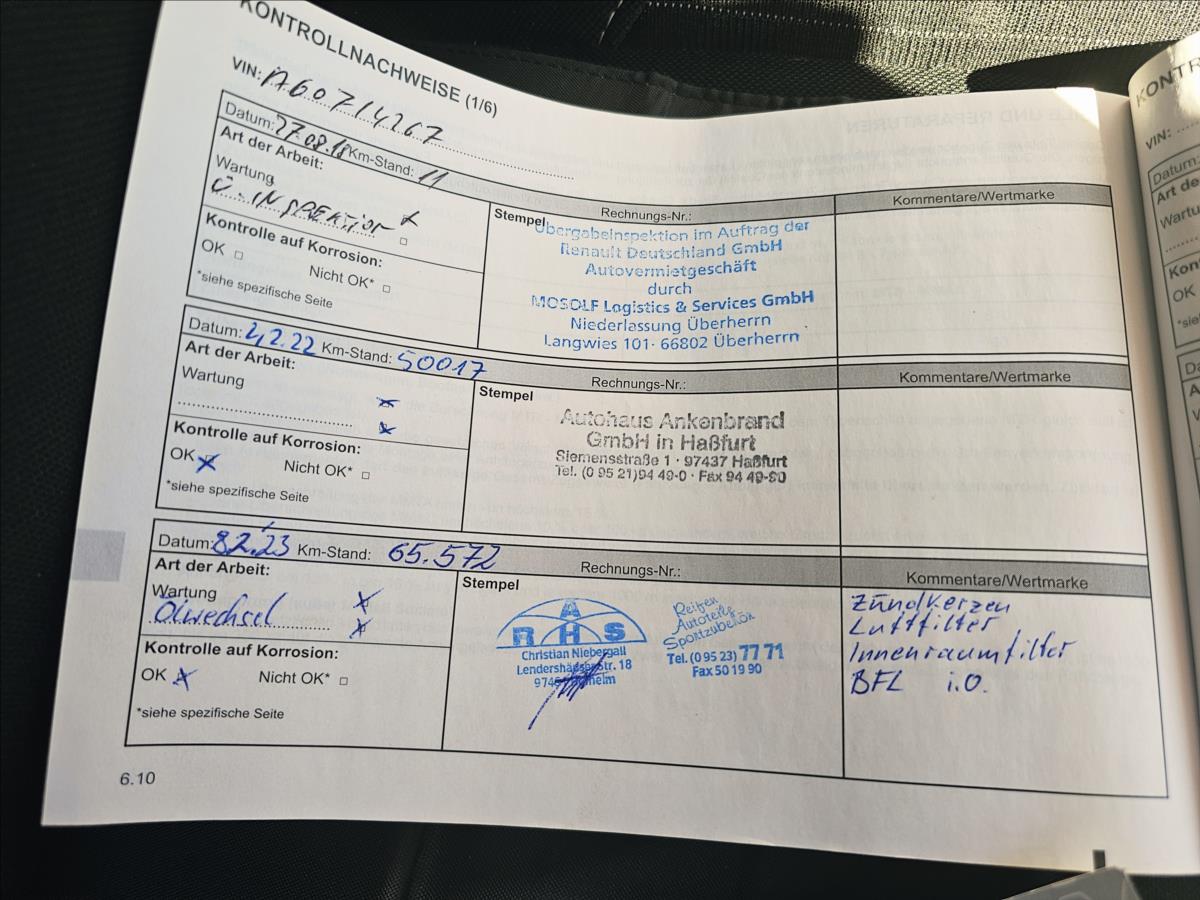 KONTROLLNACHWEISE (1/6)
VIN: A60714267
Datum: 27.08.18 Km-Stand: 11
Art der Arbeit:
Wartung
Ü-INSPEKTION
Kontrolle auf Korrosion:
OK
Nicht OK*
*siehe spezifische Seite
Stempel
Rechnungs-Nr.:
Übergabeinspektion im Auftrag der
Renault Deutschland GmbH
Autovermietgeschäft
durch
MOSOLF Logistics & Services GmbH
Niederlassung Überherrn
Langwies 101· 66802 Überherrn
Kommentare/Wertmarke
Datum: 4.2.22 Km-Stand: 50017
Art der Arbeit:
Wartung
Kontrolle auf Korrosion:
OK
Nicht OK*
*siehe spezifische Seite
Stempel
Rechnungs-Nr.:
Autohaus Ankenbrand
GmbH in Haßfurt
Siemensstraße 1 · 97437 Haßfurt
Tel. (0 95 21)94 49-0 · Fax 94 49-90
Kommentare/Wertmarke
Datum: 8.2.23 Km-Stand: 65.572
Art der Arbeit:
Wartung
Ölwechsel
Kontrolle auf Korrosion:
OK
Nicht OK*
*siehe spezifische Seite
Stempel
Rechnungs-Nr.:
ARHS
Christian Niebergall
Lendershäuser Str. 18
Reifen
Autoteile
Sportzubehör
Tel. (0 95 23) 77 71
Fax 50 19 90
Kommentare/Wertmarke
Zündkerzen
Luftfilter
Innenraumfilter
BFL i.O.
6.10
KONTR
VIN:
Datum:
Art de
Wartu
Kon
OK
*sie